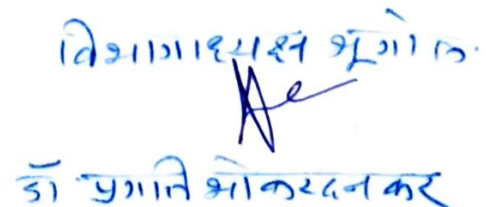 विभागाध्यक्ष भूगोल.
डॉ प्रगति भोकरदनकर